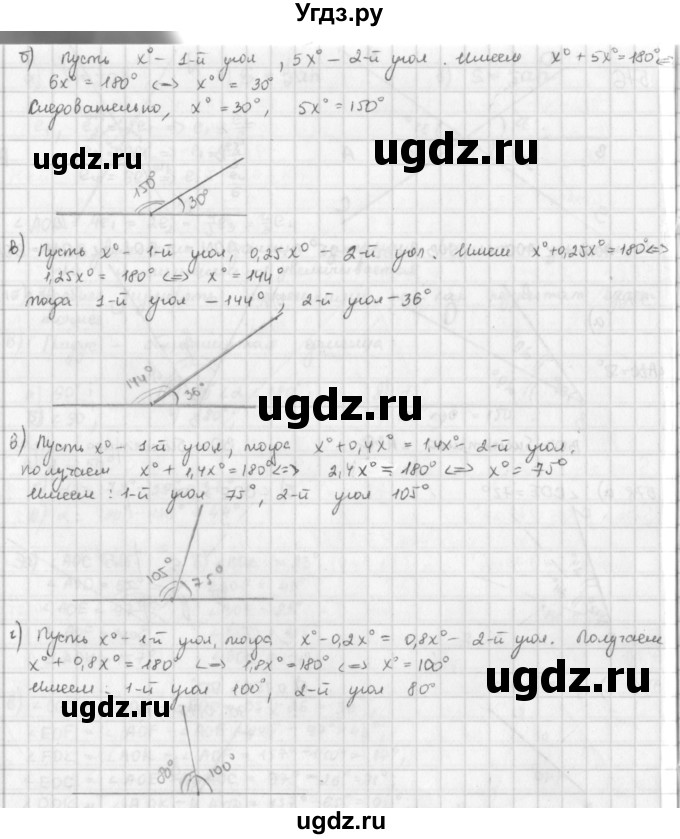 Угдз.ру
б) Пусть x° - 1-й угол, 5x° - 2-й угол. Имеем x° + 5x° = 180° <=>
6x° = 180° <=> x° = 30°
Следовательно, x° = 30°, 5x° = 150°
ugdz.ru
ugdz.ru
150°
30°
в) Пусть x° - 1-й угол, 0,25x° - 2-й угол. Имеем x° + 0,25x° = 180° <=>
1,25x° = 180° <=> x° = 144°
тогда 1-й угол - 144°, 2-й угол - 36°
144°
36°
ugdz.ru
в) Пусть x° - 1-й угол, тогда x° + 0,4x° = 1,4x° - 2-й угол.
получаем x° + 1,4x° = 180° <=> 2,4x° = 180° <=> x° = 75°
Имеем: 1-й угол 75°, 2-й угол 105°
105°
75°
г) Пусть x° - 1-й угол, тогда x° - 0,2x° = 0,8x° - 2-й угол. Получаем
x° + 0,8x° = 180° <=> 1,8x° = 180° <=> x° = 100°
Имеем: 1-й угол 100°, 2-й угол 80°
ugdz.ru
ugdz.ru
80°
100°
ugdz.ru